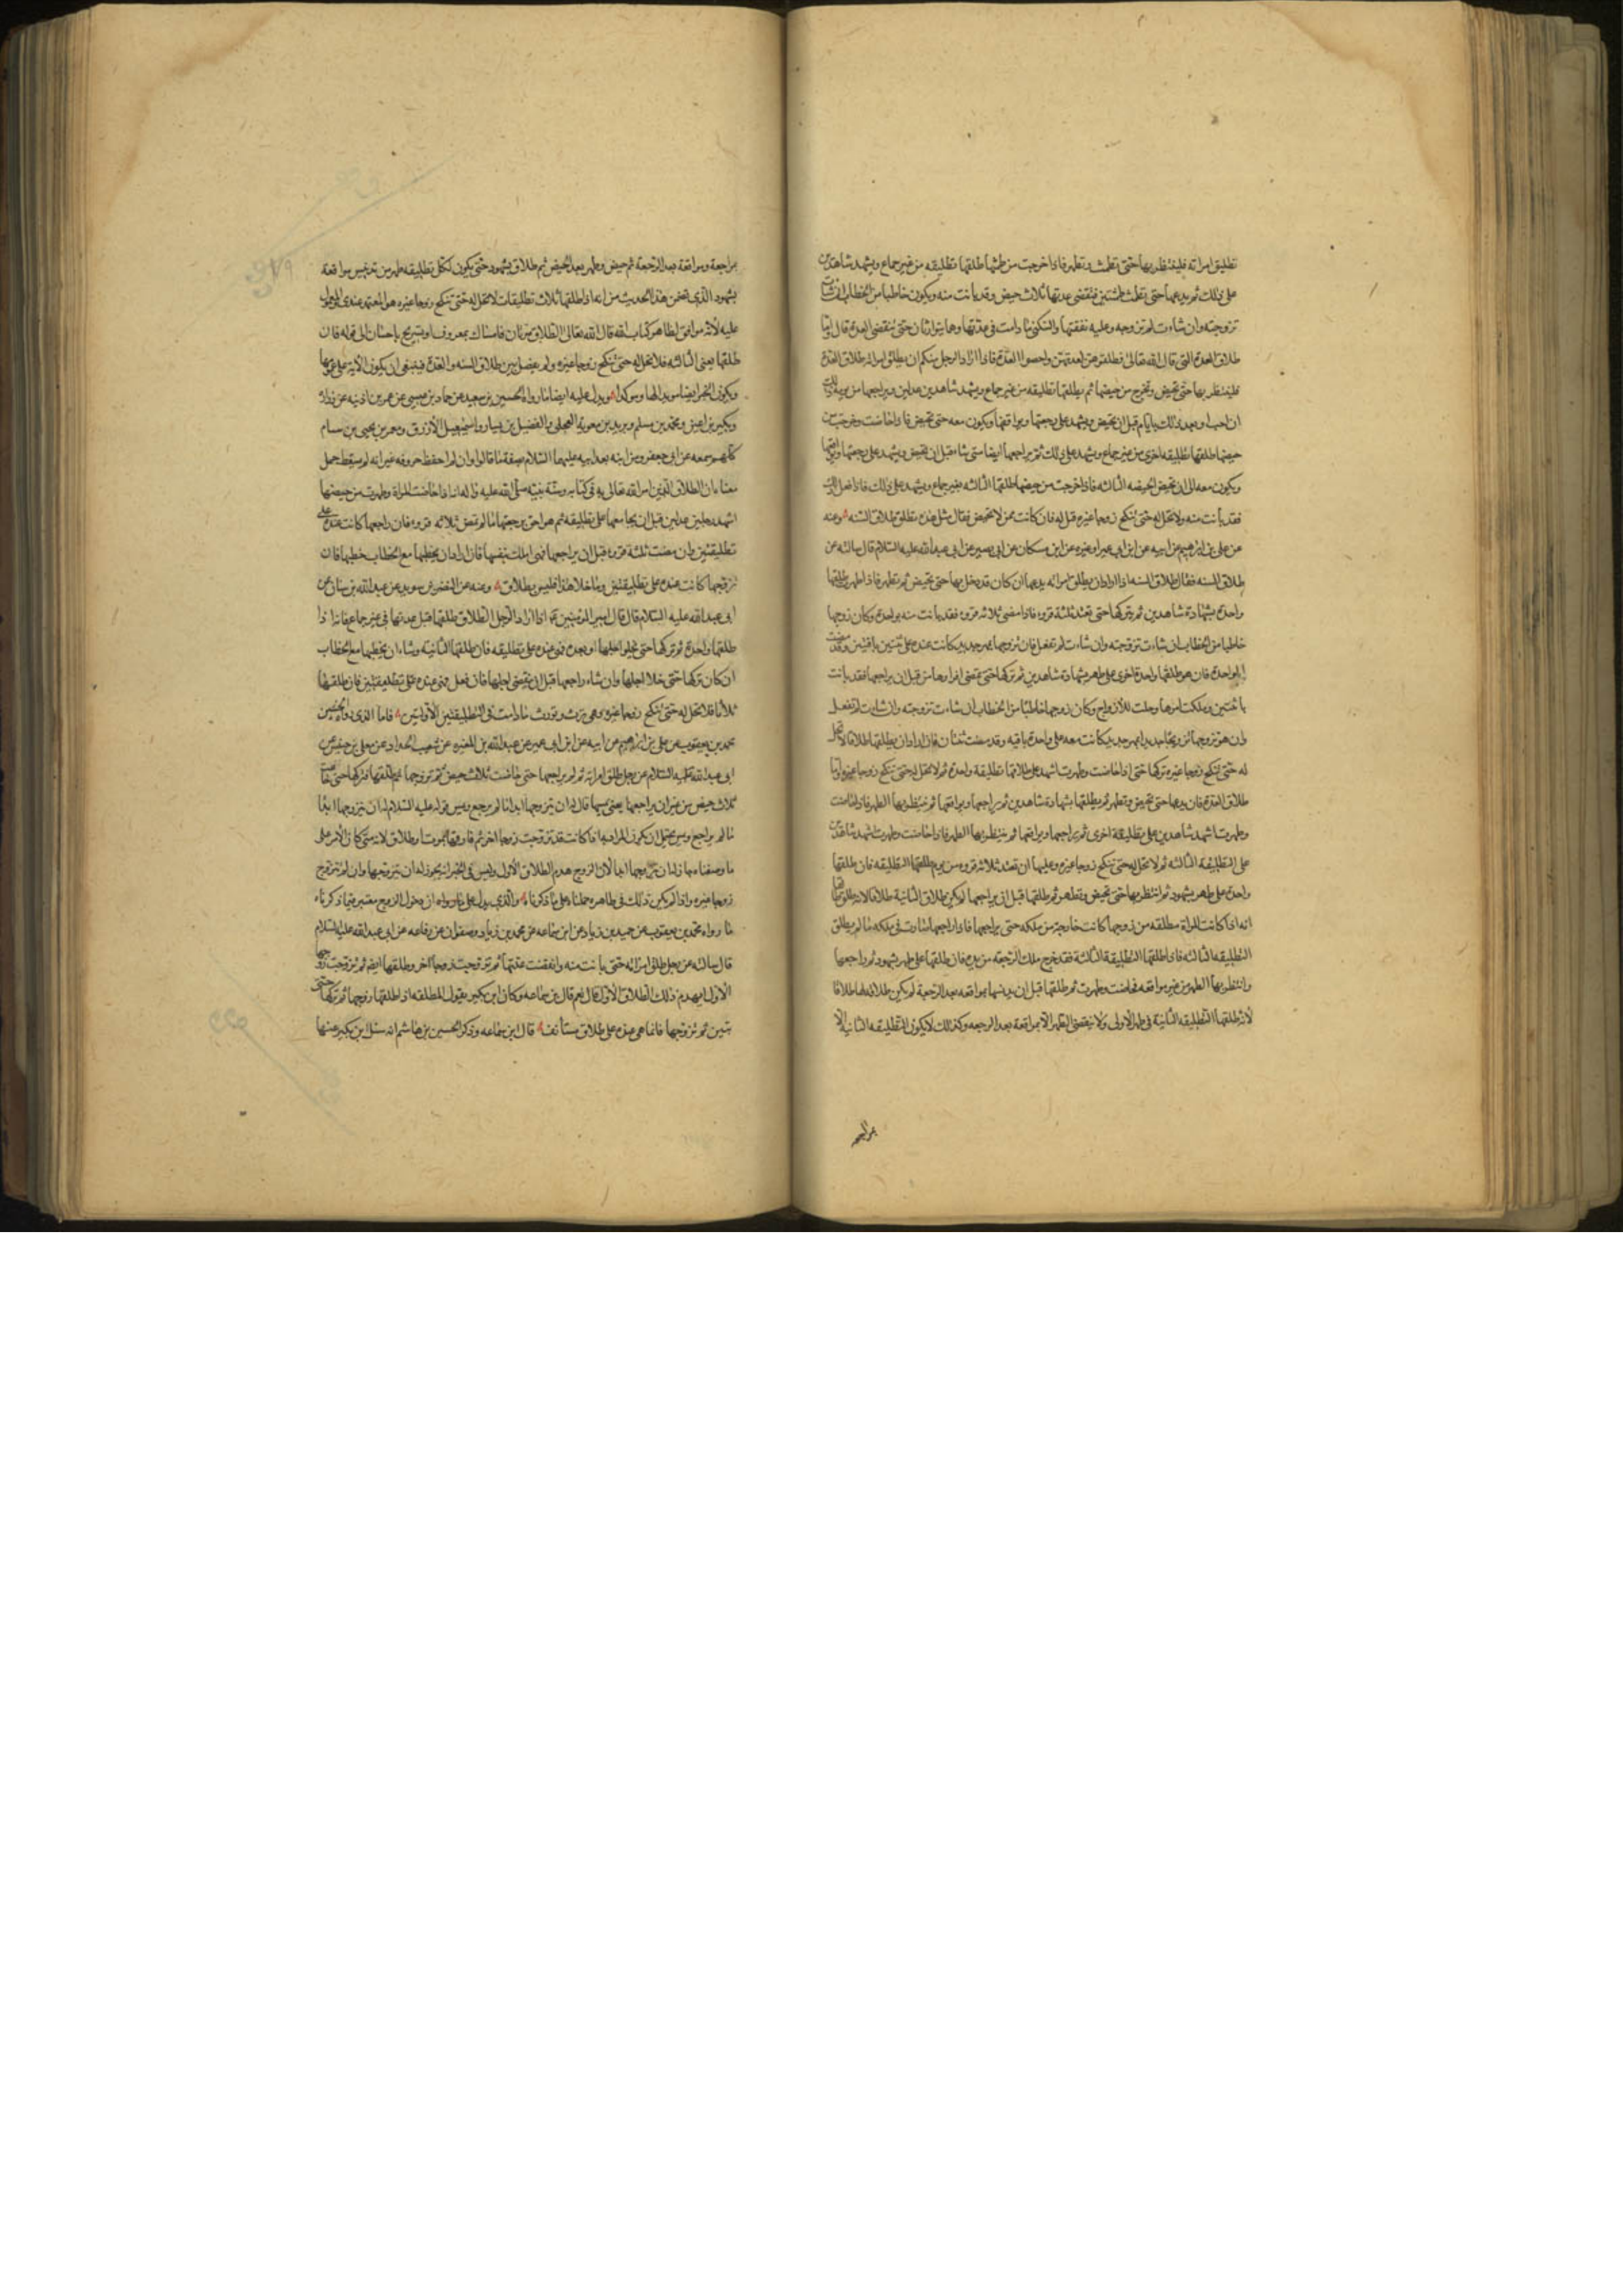 تطليق امراته فلينتظر بها حتى تطمث وتطهر فاذا خرجت من طمثها طلقها تطليقه من غير جماع ويشهد شاهدين
على ذلك ثم يدعها حتى تطمث طمثتين فتنقضى عدتها بثلاث حيض وقد بانت منه ويكون خاطبا من الخطاب ان شاءت
تزوجته وان شاءت لم تزوجه وعليه نفقتها والسكنى ما دامت فى عدتها وهما يتوارثان حتى تنقضى العدة قال واما
طلاق العدة التى قال الله تعالى فطلقوهن لعدتهن واحصوا العدة فاذا اراد الرجل منكم ان يطلق امراته طلاق العدة
فلينتظر بها حتى تحيض وتخرج من حيضها ثم يطلقها تطليقه من غير جماع ويشهد شاهدين عدلين ويراجعها من يومه ذلك
ان احب او بعد ذلك بايام قبل ان تحيض ويشهد على رجعتها ويواقعها وتكون معه حتى تحيض فاذا حاضت وخرجت من
حيضها طلقها تطليقه اخرى من غير جماع ويشهد على ذلك ثم يراجعها ايضا متى شاء قبل ان تحيض ويشهد على رجعتها ويواقعها
وتكون معه الى ان تحيض الحيضه الثالثه فاذا خرجت من حيضها طلقها الثالثه بغير جماع ويشهد على ذلك فاذا فعل ذلك
فقد بانت منه ولا تحل له حتى تنكح زوجا غيره قيل له فان كانت ممن لا تحيض فقال مثل هذه تطلق طلاق السنه وعنه
عن على بن ابرهيم عن ابيه عن ابن ابى عمير او غيره عن ابن مسكان عن ابى بصير عن ابى عبد الله عليه السلام قال سالته عن
طلاق السنه فقال طلاق السنه اذا اراد ان يطلق امراته يدعها ان كان قد دخل بها حتى تحيض ثم تطهر فاذا طهرت طلقها
واحدة بشهادة شاهدين ثم يتركها حتى تعتد ثلثة قروء فاذا مضى ثلاثه قروء فقد بانت منه بواحدة وكان زوجها
خاطبا من الخطاب ان شاءت تزوجته وان شاءت لم تفعل فان تزوجها بمهر جديد كانت عنده على ثنتين باقيتين وقد مضت
الواحدة فان هو طلقها واحدة اخرى على طهر بشهادة شاهدين ثم تركها حتى تمضى اقراوها من قبل ان يراجعها فقد بانت
باثنتين وملكت امرها وحلت للازواج وكان زوجها خاطبا من الخطاب ان شاءت تزوجته وان شاءت لم تفعل
وان هو تزوجها تزويجا جديدا بمهر جديد كانت معه على واحدة باقيه وقد مضت ثنتان فان اراد ان يطلقها طلاقا لا تحل
له حتى تنكح زوجا غيره تركها حتى اذا حاضت وطهرت اشهد على طلاقها تطليقة واحدة ثم لا تحل له حتى تنكح زوجا غيره واما
طلاق العدة فان يدعها حتى تحيض وتطهر ثم يطلقها بشهادة شاهدين ثم يراجعها ويواقعها ثم ينتظر بها الطهر فاذا حاضت
وطهرت اشهد شاهدين على تطليقة اخرى ثم يراجعها ويواقعها ثم ينتظر بها الطهر فاذا حاضت وطهرت اشهد شاهدين
على التطليقة الثالثه ثم لا تحل له حتى تنكح زوجا غيره وعليها ان تعتد ثلاثه قروء من يوم طلقها التطليقه فان طلقها
واحدة على طهر بشهود ثم انتظر بها حتى تحيض وتطهر ثم طلقها قبل ان يراجعها لم يكن طلاق الثانية طلاقا لانه طلق طالقا
انه اذا كانت المراة مطلقه من زوجها كانت خارجة من ملكه حتى يراجعها فاذا راجعها صارت فى ملكه ما لم يطلق
التطليقه الثالثه فاذا طلقها التطليقة الثالثة فقد خرج ملك الرجعة من يده فان طلقها على طهر بشهود ثم راجعها
وانتظر بها الطهر من غير مواقعه فحاضت وطهرت ثم طلقها قبل ان يدنسها بمواقعه بعد الرجعة لم يكن طلاقه لها طلاقا
لانه طلقها التطليقه الثانية فى طهر الاولى ولا ينقضى الطهر الا بمواقعة بعد الرجعه وكذلك لا يكون التطليقه الثانيه الا
مراجعة ومواقعة بعد الرجعة ثم حيض وطهر بعد الحيض ثم طلاق بشهود حتى يكون لكل تطليقه طهر من تدنيس مواقعة
بشهود الذى تضمن هذا الحديث من انه اذا طلقها ثلاث تطليقات لا تحل له حتى تنكح زوجا غيره هو المعتمد عندى المعمول
عليه لانه موافق لظاهر كتاب الله قال الله تعالى الطلاق مرتان فامساك بمعروف او تسريح باحسان الى قوله فان
طلقها يعنى الثالثه فلا تحل له حتى تنكح زوجا غيره ولم يفصل بين طلاق السنه والعدة فينبغى ان يكون الاية على عمومها
ويكون الخبر ايضا مويدا لها وموكدا ويدل عليه ايضا ما رواه الحسين بن سعيد عن حماد بن عيسى عن عمر بن اذينه عن زرارة
وبكير بن اعين ومحمد بن مسلم وبريد بن معوية العجلى والفضيل بن يسار واسمعيل الازرق ومعمر بن يحيى بن سام
كلهم سمعه عن ابى جعفر ومن ابنه بعد ابيه عليهما السلام بصفة ما قالوا وان لم احفظ حروفه غير انه لم يسقط جمل
معناه ان الطلاق الذى امر الله تعالى به فى كتابه وسنة نبيه صلى الله عليه واله انه اذا حاضت المراة وطهرت من حيضها
اشهد رجلين عدلين قبل ان يجامعها على تطليقه ثم هو احق برجعتها ما لم تمض ثلاثه قروء فان راجعها كانت عنده على
تطليقتين وان مضت ثلثة قروء قبل ان يراجعها فهى املك بنفسها فان اراد ان يخطبها مع الخطاب خطبها فان
تزوجها كانت عنده على تطليقتين وما خلا هذا فليس بطلاق وعنه عن النضر بن سويد عن عبد الله بن سنان عن
ابى عبد الله عليه السلام قال قال امير المؤمنين ع اذا اراد الرجل الطلاق طلقها قبل عدتها فى غير جماع فانه اذا
طلقها واحدة ثم تركها حتى تخلوا اجلها او بعده فهى عنده على تطليقه فان طلقها الثانية وشاء ان يخطبها مع الخطاب
ان كان تركها حتى خلا اجلها وان شاء راجعها قبل ان ينقضى اجلها فان فعل فهى عنده على تطليقتين فان طلقها
ثلاثا فلا تحل له حتى تنكح زوجا غيره وهى ترث وتورث ما دامت فى التطليقتين الاولتين فاما الذى رواه الحسين
محمد بن يعقوب عن على بن ابرهيم عن ابيه عن ابن ابى عمير عن عبد الله بن المغيره عن شعيب الحداد عن معلى بن خنيس عن
ابى عبد الله عليه السلام عن رجل طلق امراته ثم لم يراجعها حتى حاضت ثلاث حيض ثم تزوجها ثم طلقها فتركها حتى حاضت
ثلاث حيض من غير ان يراجعها يعنى يمسها قال له ان يتزوجها ابدا ما لم يرجع ويمس قوله عليه السلام له ان يتزوجها ابدا
ما لم يراجع ويمس يحتمل ان يكون المراد به اذا كانت قد تزوجت زوجا اخر ثم فارقها بموت او طلاق لانه متى كان الامر على
ما وصفناه جاز له ان يتزوجها ابدا لان الزوج هدم الطلاق الاول وليس فى الخبر انه يجوز له ان يتزوجها وان لم تتزوج
زوجا غيره واذا لم يكن ذلك فى ظاهره حملناه على ما ذكرناه والذى يدل على ما رواه ان دخول الزوج معتبر فيما ذكرناه
ما رواه محمد بن يعقوب عن حميد بن زياد عن ابن سماعه عن محمد بن زياد وصفوان عن رفاعه عن ابى عبد الله عليه السلام
قال سالته عن رجل طلق امراته حتى بانت منه وانقضت عدتها ثم تزوجت زوجا اخر وطلقها ايضا ثم تزوجت زوجها
الاول ايهدم ذلك الطلاق الاول قال نعم قال بن سماعه وكان ابن بكير يقول المطلقه اذا طلقها زوجها ثم تركها حتى
تبين ثم تزوجها فانما هى عنده على طلاق مستانف قال ابن سماعه وذكر الحسين بن هاشم انه سئل ابن بكير عنها